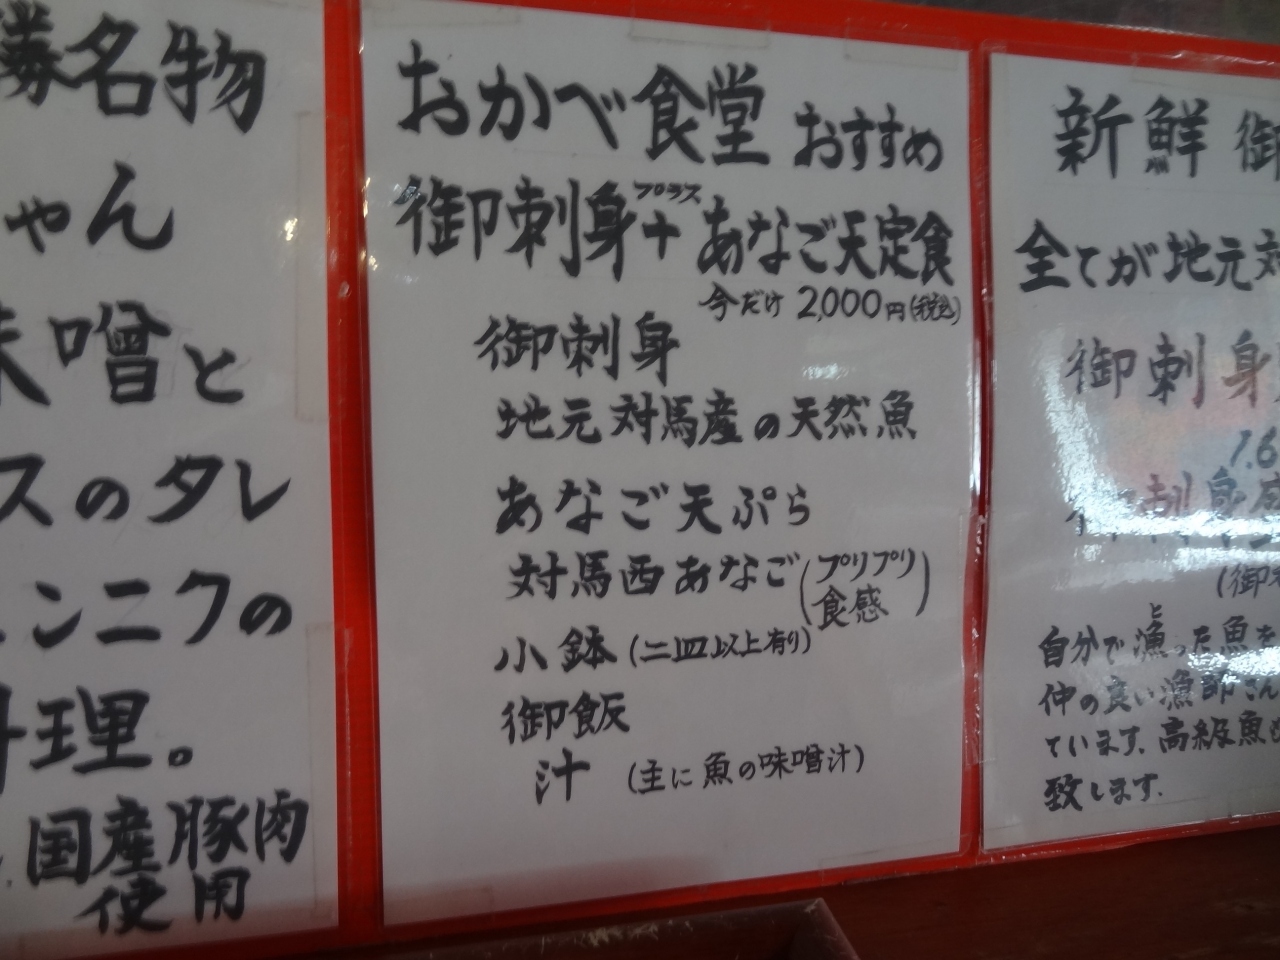 名物
ゃん
味噌と
スのタレ
ンニクの
料理。
国産豚肉
使用
おかべ食堂 おすすめ
プラス
御刺身+あなご天定食
今だけ 2,000円(税込)
御刺身
地元対馬産の天然魚
あなご天ぷら
対馬西あなご(プリプリ
食感)
小鉢(二皿以上有り)
御飯
汁 (主に魚の味噌汁)
新鮮 御
全てが地元対
御刺身
1.6
(御
ヒ
自分で漁った魚を
仲の良い漁師さん
ています。高級魚
致します。